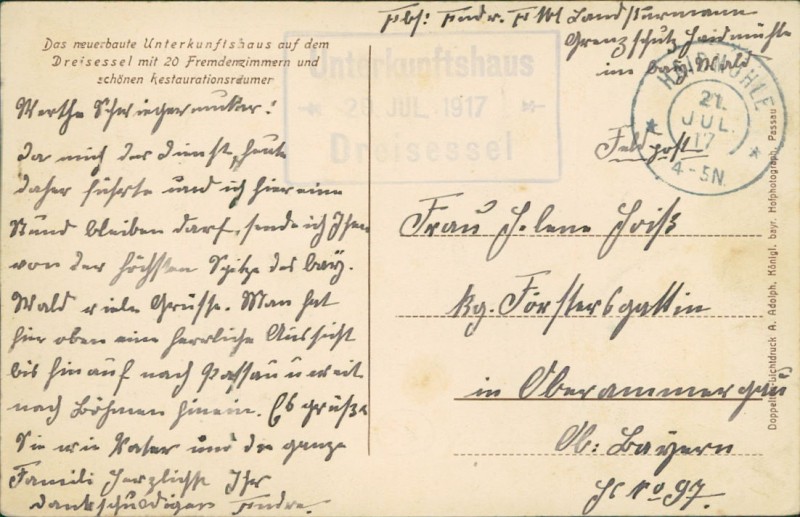 Das neuerbaute Unterkunftshaus auf dem
Dreisessel mit 20 Fremdenzimmern und
schönen Restaurationsräumen
Unterkunftshaus
20. JUL. 1917
Dreisessel
Werthe Schwiegermutter!
Da mich der Dienst heute
daher führte und ich hier eine
Stund bleiben darf, sende ich Ihnen
von der höchsten Spitze des bay.
Wald viele Grüsse. Man hat
hier oben eine herrliche Aussicht
bis hinauf nach Passau u weit
nach Böhmen hinein. Es grüßt
Sie wie Vater und die ganze
Famili herzlichst Ihr
dankschuldiger Andre.
Abs: Andr. Landsturmmann
Grenzschutz Haidmühle
im bay. Wald
HAIDMÜHLE
21.
JUL.
17
4-5N.
Feldpost
Frau Helene Hoiß
kg. Förstersgattin
in Oberammergau
Ob: Bayern
Hs No 97.
Doppelton-Lichtdruck A. Adolph, Königl. bayr. Hofphotograph, Passau